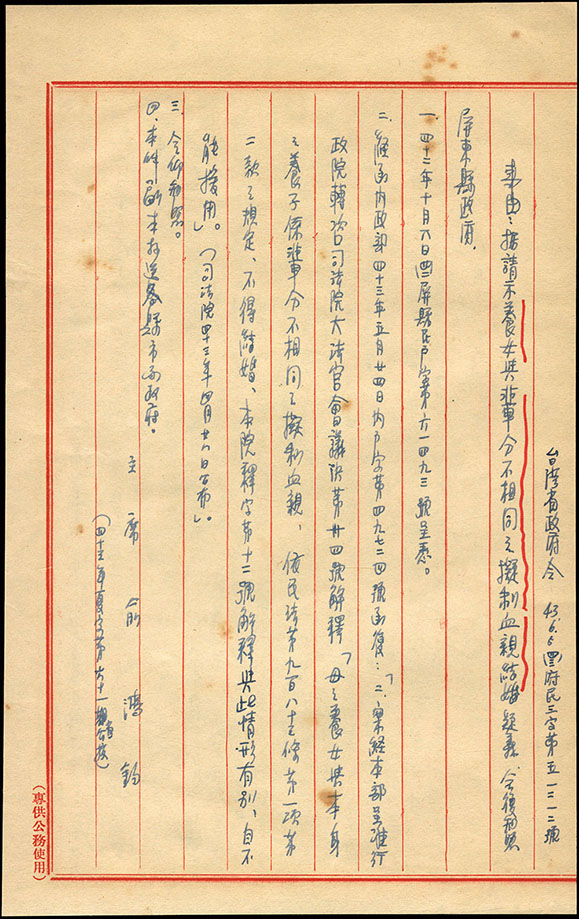 台灣省政府令 43.6.5 四三府民三字第五一二一二號
事由:據請示養女與輩分不相同之擬制血親結婚疑義 令復知照
屏東縣政府.
一.四十二年十月六日屏縣民戶字第六一四九三號呈悉。
二.經函內政部四十三年五月廿四日內戶字第四九七二四號函復:「二.案經本部呈准行
政院轉咨司法院大法官會議決第卅四號解釋「母之養女與本身
之養子係輩分不相同之擬制血親、依民法第九百八十三條第一項第
二款之規定、不得結婚、本院釋字第十二號解釋與此情形有別、自不
能援用」。(司法院四十三年四月廿八日公布)」。
三.令仰知照。
四.本件副本抄送各縣市政府。
主席 俞鴻鈞
(四十三年夏字第六十一期省公報)
(專供公務使用)